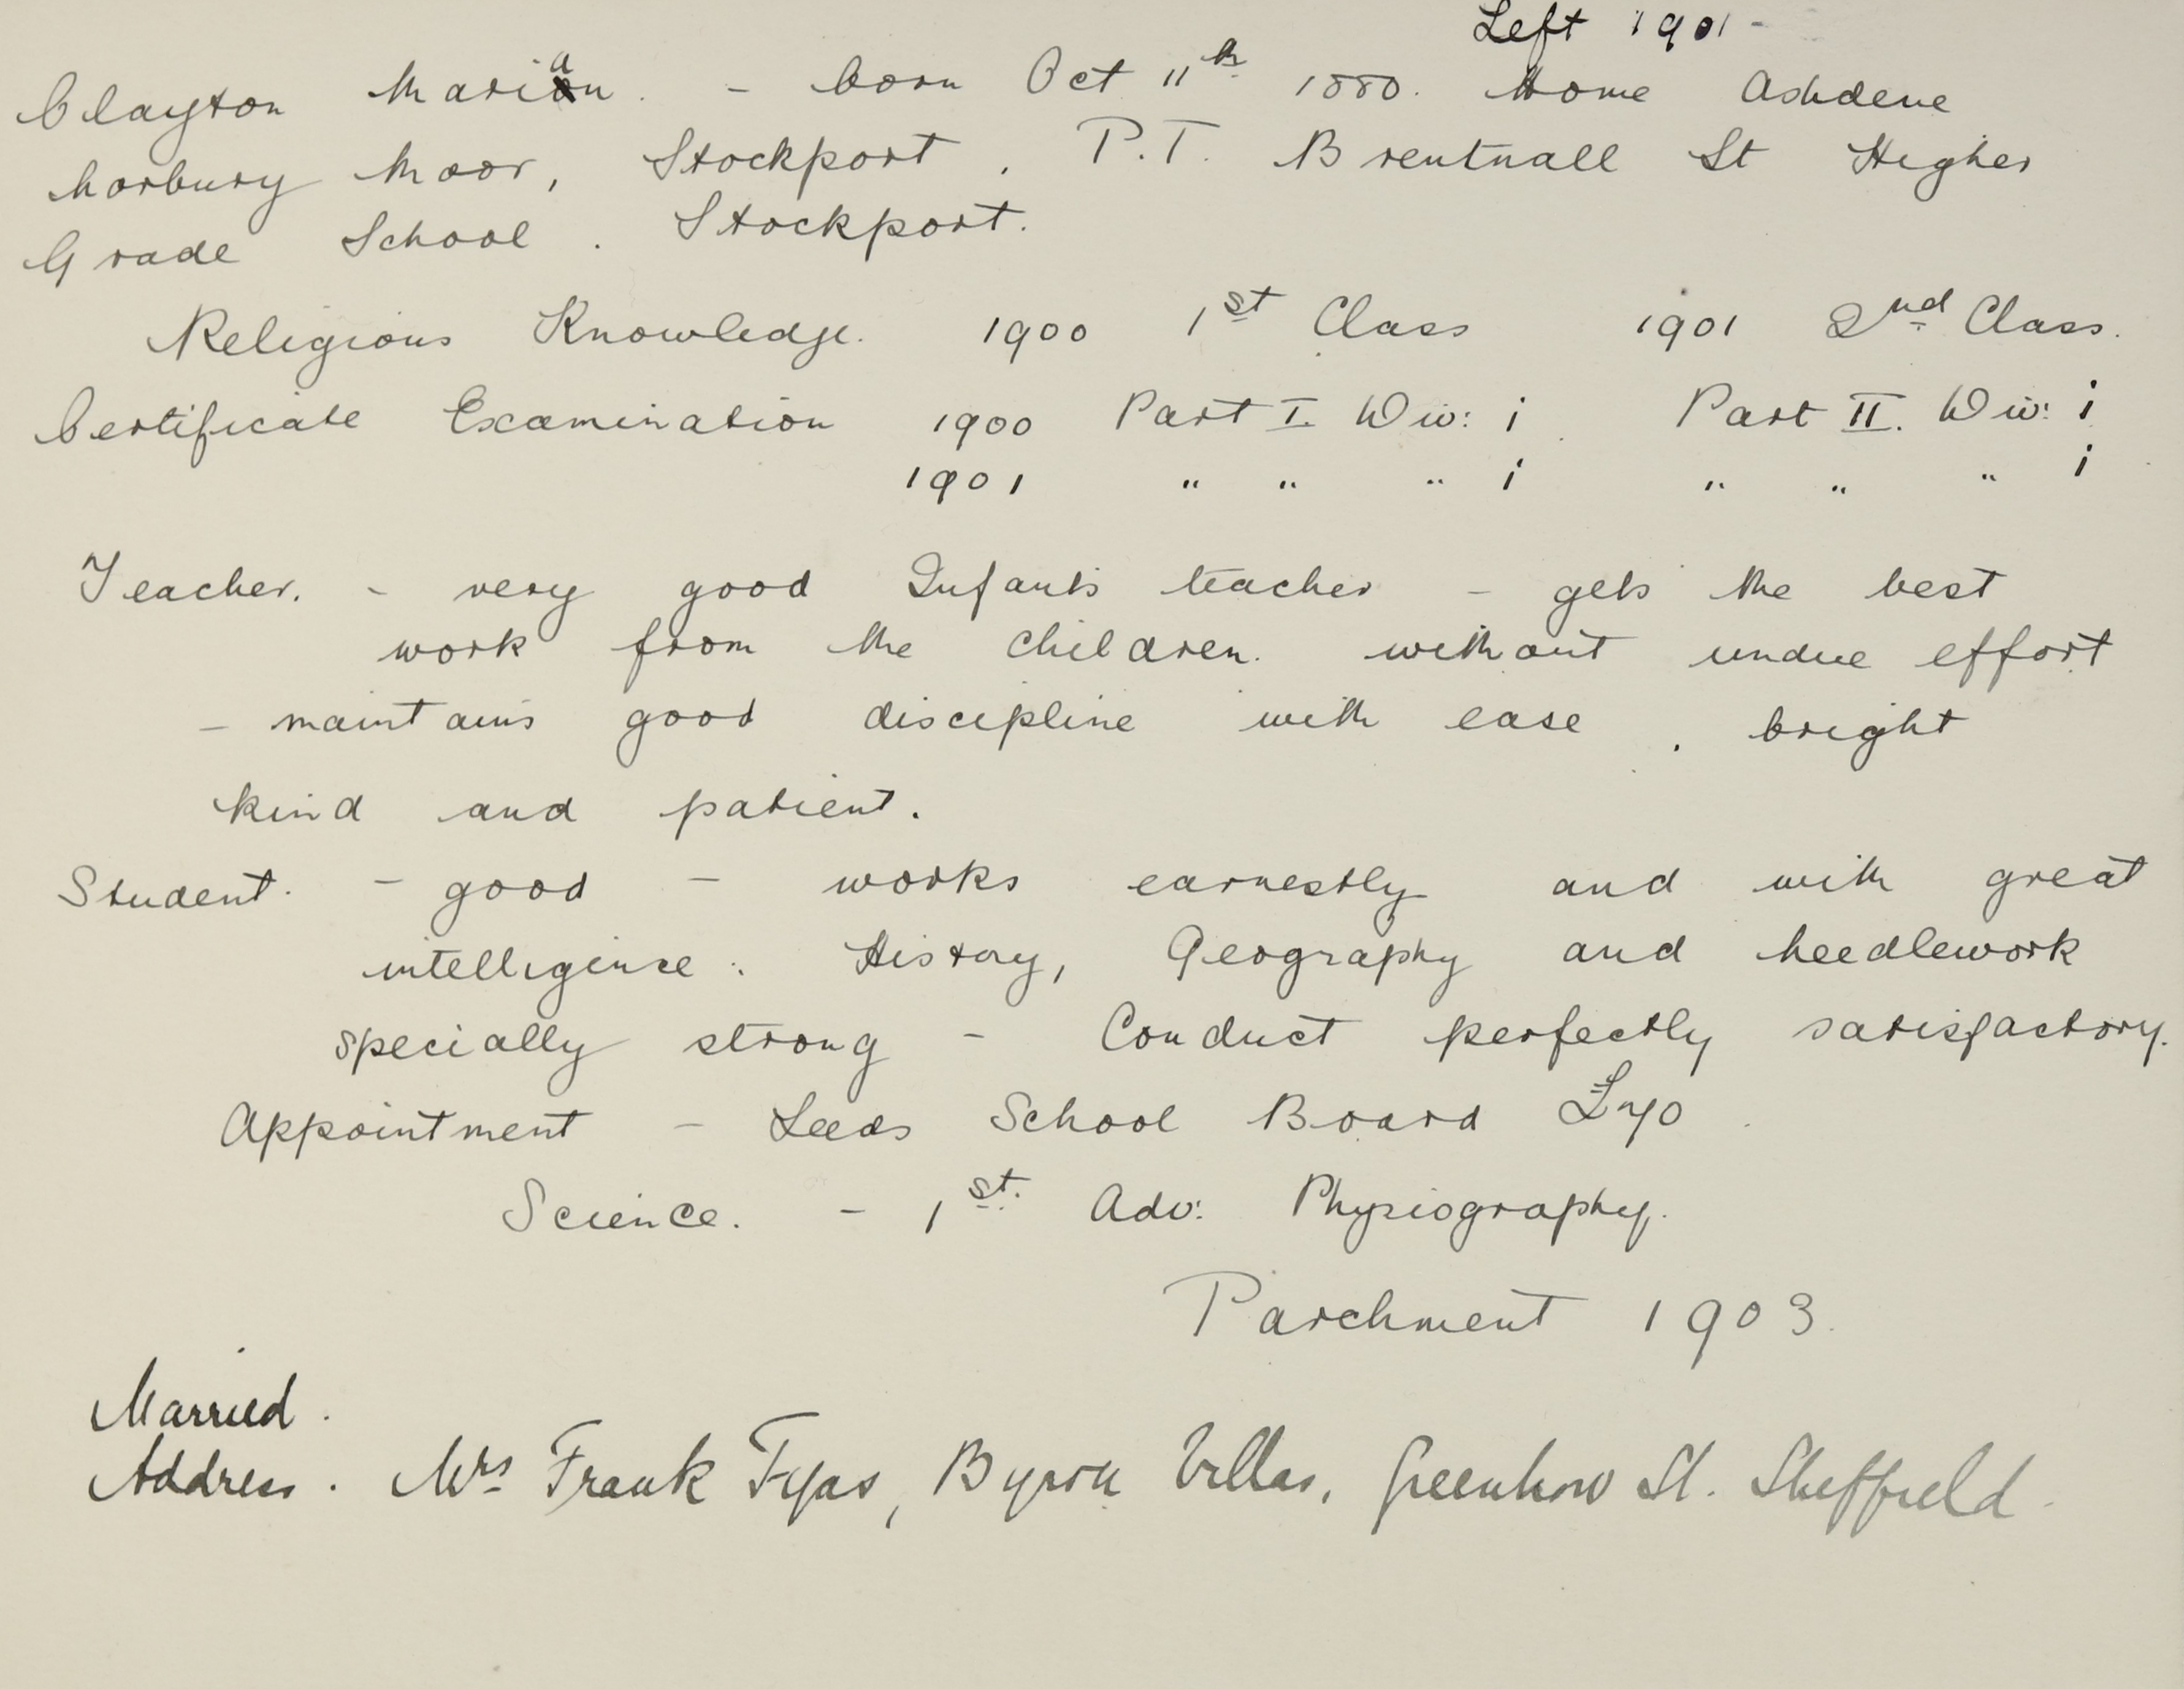 Left 1901 -
Clayton Marian. - born Oct 11th 1880. Home Ashdene
Norbury Moor, Stockport, P.T. Brentnall St Higher
Grade School. Stockport.
Religious Knowledge. 1900 1st Class 1901 2nd Class.
Certificate Examination 1900 Part I. Div: i. Part II. Div: i
1901 " " " i " " " i
Teacher. - very good Infants teacher - gets the best
work from the children. without undue effort
- maintains good discipline with ease, bright
kind and patient.
Student. - good - works earnestly and with great
intelligence: History, Geography and Needlework
specially strong - Conduct perfectly satisfactory.
Appointment - Leeds School Board £70
Science. - 1st. Adv: Physiography.
Parchment 1903.
Married.
Address. Mrs Frank Tyas, Byron Villas, Greenhow St. Sheffield.